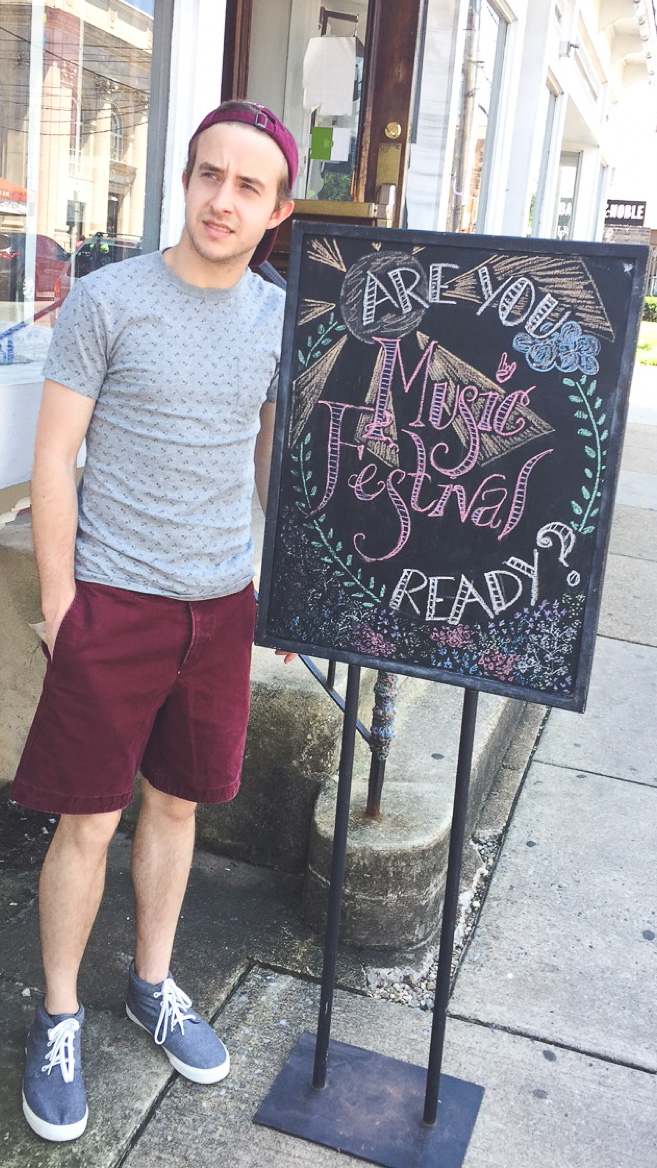 ARE YOU
Music
Festival
READY?
NOBLE